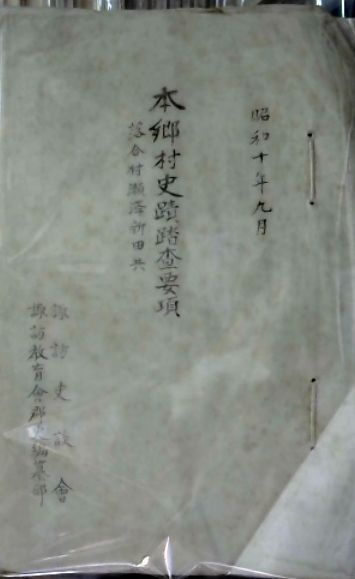 昭和十年九月
本郷村史蹟踏査要項
落合村瀬澤新田共
諏訪史談會
諏訪教育會郡史編纂部